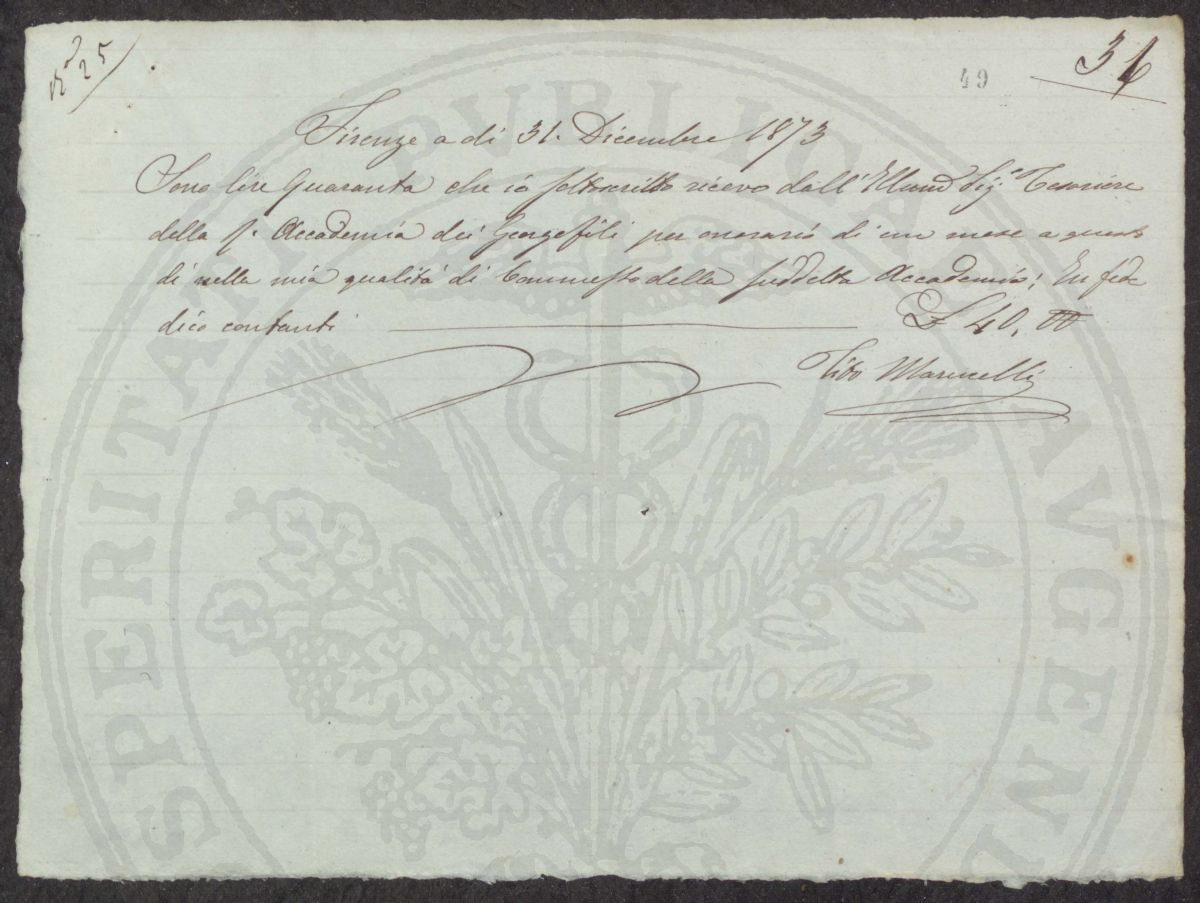 N° 25
49
31
Firenze a di 31. Dicembre 1873
Sono lire Quaranta che io sottoscritto ricevo dall' Illmo Sig.e Tesoriere
della R. Accademia dei Georgofili per onorario di un mese a questo
di nella mia qualità di Commesso della suddetta Accademia; In fede
dico contanti £ 40, 00
Tito Marucelli
PROSPERITATI PVBLICAE AVGENDAE